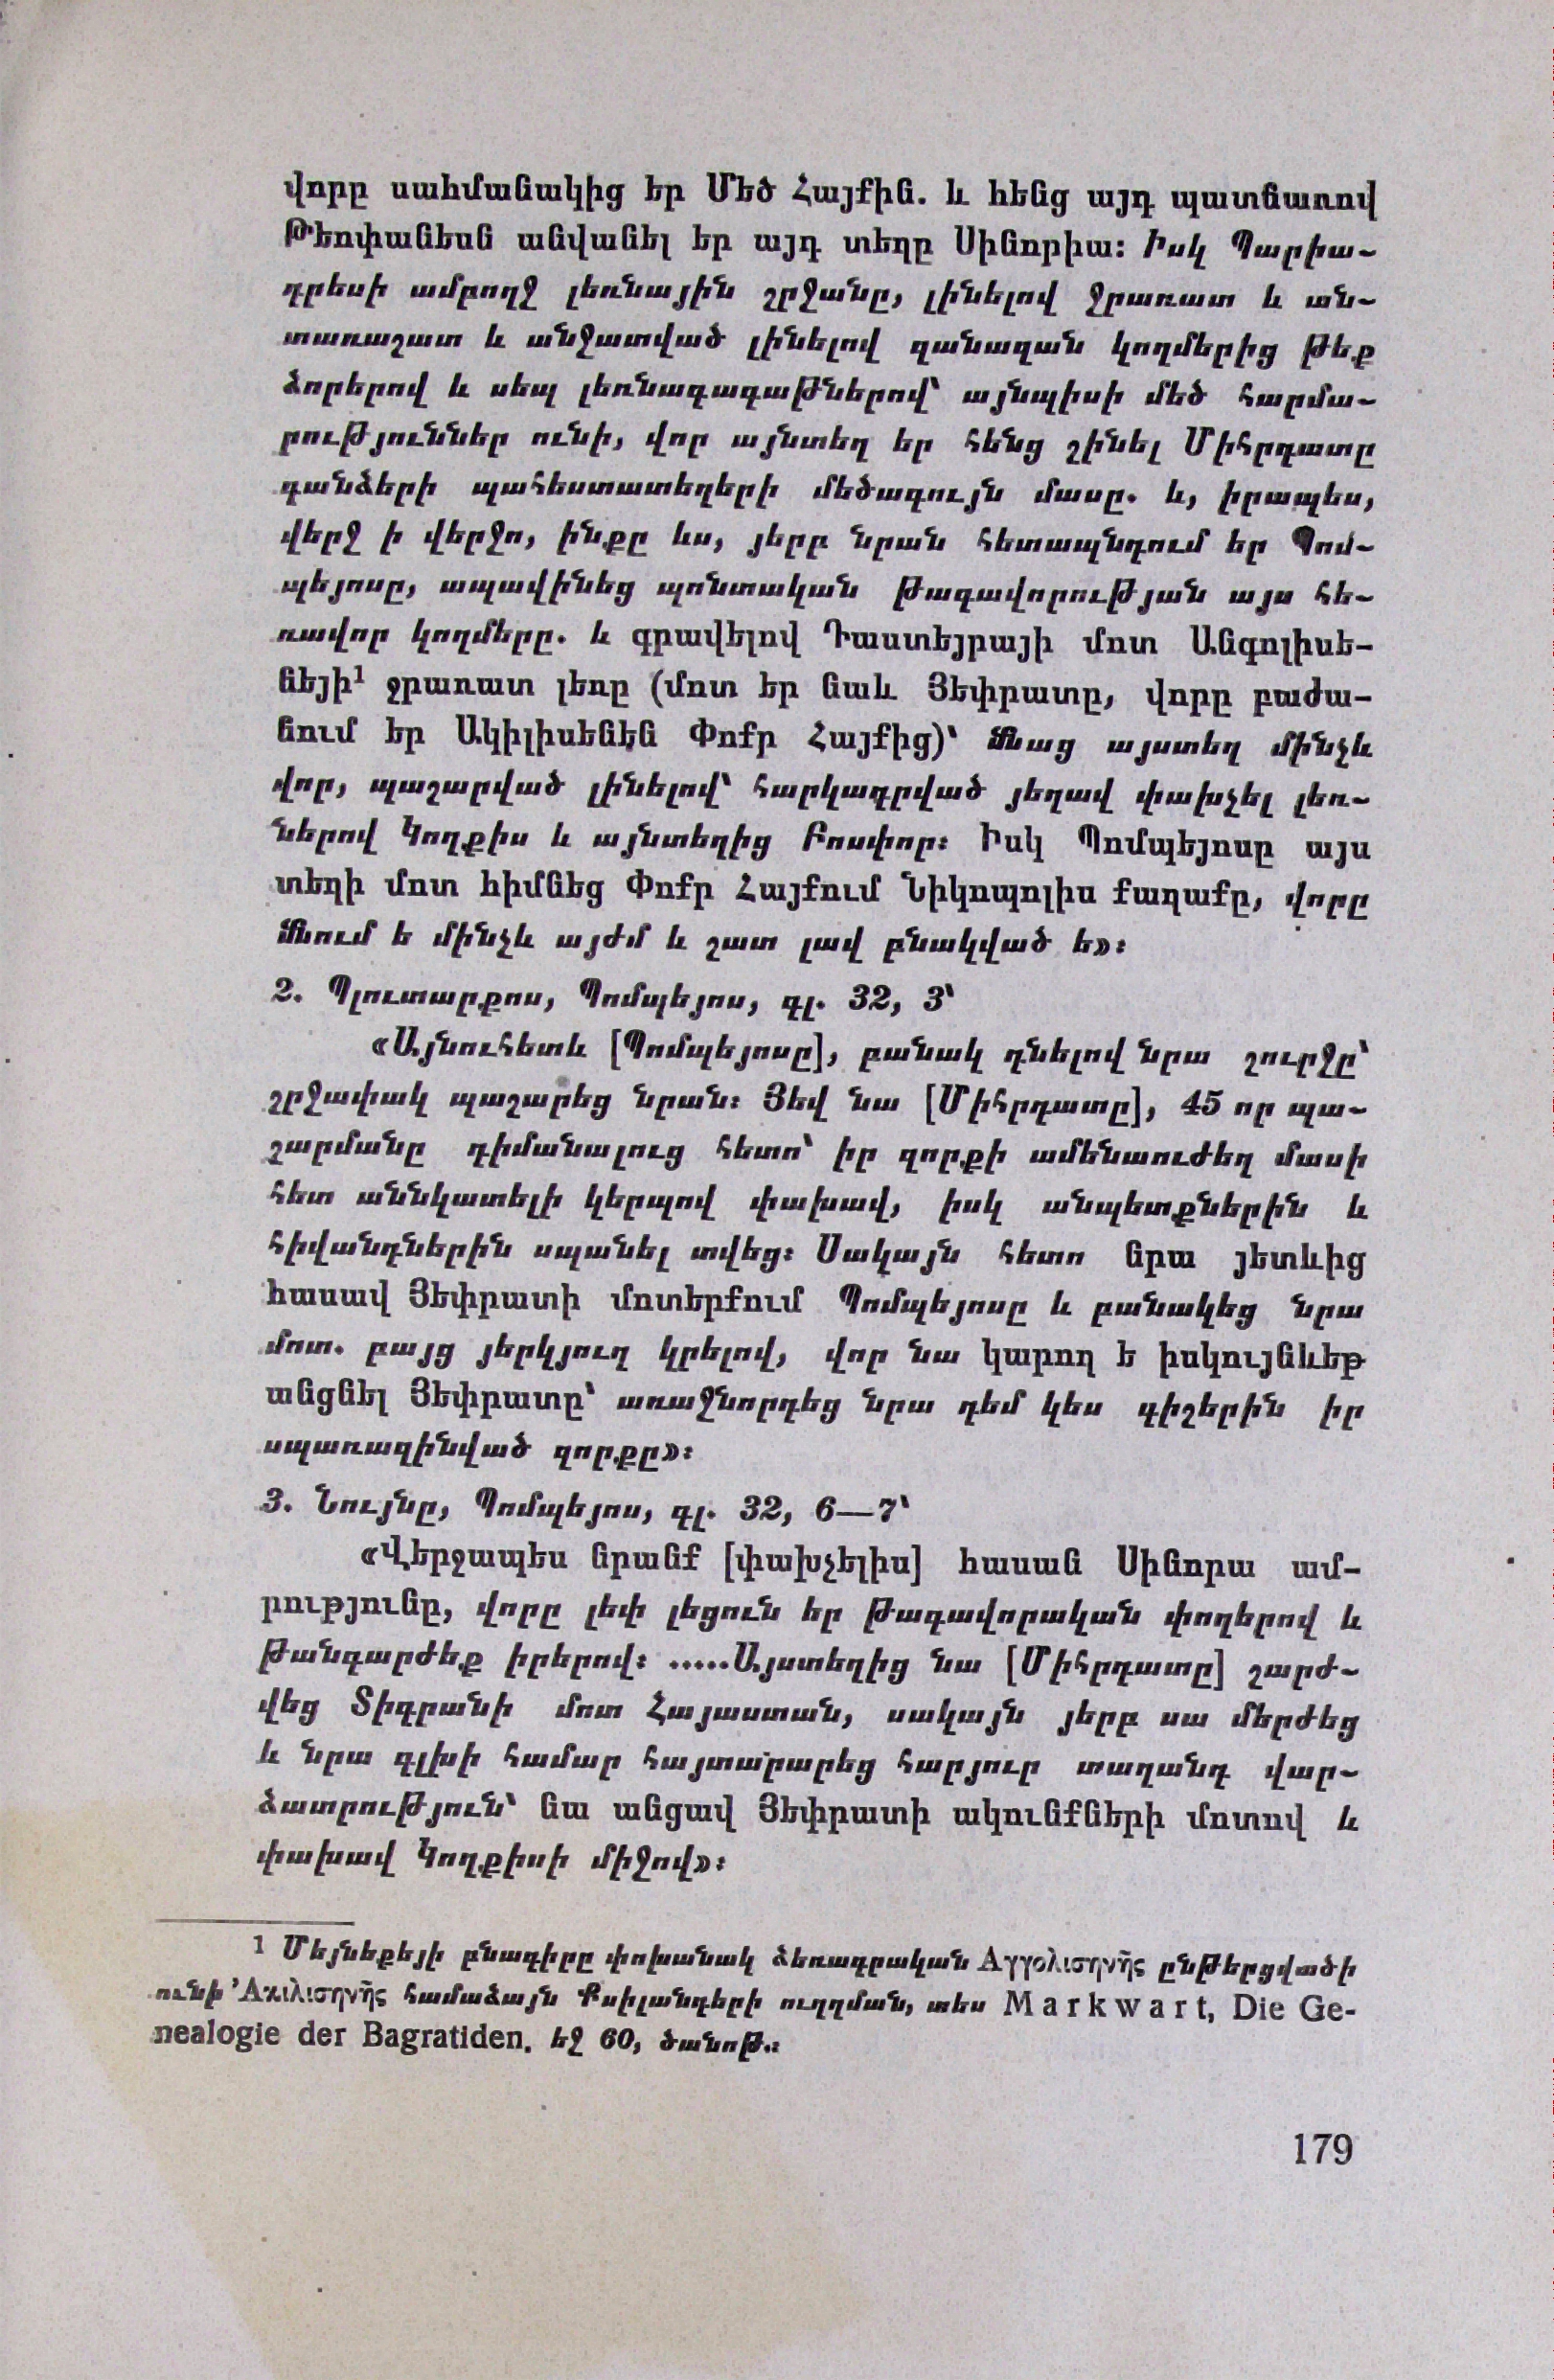 վորը սահմանակից եր Մեծ Հայքին. և հենց այդ պատճառով
Թեոփանեսն անվանել եր այդ տեղը Սինորիա: Իսկ Պարիա-
դրեսի ամբողջ լեռնային շրջանը, լինելով ջրառատ և ան-
տառաշատ և անջատված լինելով զանազան կողմերից թեք
ձորերով և սեպ լեռնագագաթներով՝ այնպիսի մեծ հարմա-
րություններ ունի, վոր այնտեղ եր հենց շինել Միհրդատը
գանձերի պահեստատեղերի մեծագույն մասը. և, իրապես,
վերջ ի վերջո, ինքը ևս, յերբ նրան հետապնդում եր Պոմ-
պեյոսը, ապավինեց պոնտական թագավորության այս հե-
ռավոր կողմերը. և գրավելով Դաստեյրայի մոտ Անգոլիսե-
նեյի¹ ջրառատ լեռը (մոտ եր նաև Յեփրատը, վորը բաժա-
նում եր Ակիլիսենեն Փոքր Հայքից)՝ մնաց այստեղ մինչև
վոր, պաշարված լինելով՝ հարկադրված յեղավ փախչել լեռ-
ներով Կողքիս և այնտեղից Բոսփոր: Իսկ Պոմպեյոսը այս
տեղի մոտ հիմնեց Փոքր Հայքում Նիկոպոլիս քաղաքը, վորը
մնում ե մինչև այժմ և շատ լավ բնակված ե»:
2. Պլուտարքոս, Պոմպեյոս, գլ. 32, 3՝
«Այնուհետև [Պոմպեյոսը], բանակ դնելով նրա շուրջը՝
շրջափակ պաշարեց նրան: Յեվ նա [Միհրդատը], 45 որ պա-
շարմանը դիմանալուց հետո՝ իր զորքի ամենաուժեղ մասի
հետ աննկատելի կերպով փախավ, իսկ անպետքներին և
հիվանդներին սպանել տվեց: Սակայն հետո նրա յետևից
հասավ Յեփրատի մոտերքում Պոմպեյոսը և բանակեց նրա
մոտ. բայց յերկյուղ կրելով, վոր նա կարող ե իսկույնևեթ
անցնել Յեփրատը՝ առաջնորդեց նրա դեմ կես գիշերին իր
սպառազինված զորքը»:
3. Նույնը, Պոմպեյոս, գլ. 32, 6—7՝
«Վերջապես նրանք [փախչելիս] հասան Սինորա ամ-
րությունը, վորը լեփ լեցուն եր թագավորական փողերով և
թանգարժեք իրերով: .....Այստեղից նա [Միհրդատը] շարժ-
վեց Տիգրանի մոտ Հայաստան, սակայն յերբ սա մերժեց
և նրա գլխի համար հայտարարեց հարյուր տաղանդ վար-
ձատրություն՝ նա անցավ Յեփրատի ակունքների մոտով և
փախավ Կողքիսի միջով»:
¹ Մեյնեքեյի բնագիրը փոխանակ ձեռագրական Αγγολισηνῆς ընթերցվածի
ունի Ἀκιλισηνῆς համաձայն Քսիլանդերի ուղղման, տես Markwart, Die Ge-
nealogie der Bagratiden, եջ 60, ծանոթ.:
179